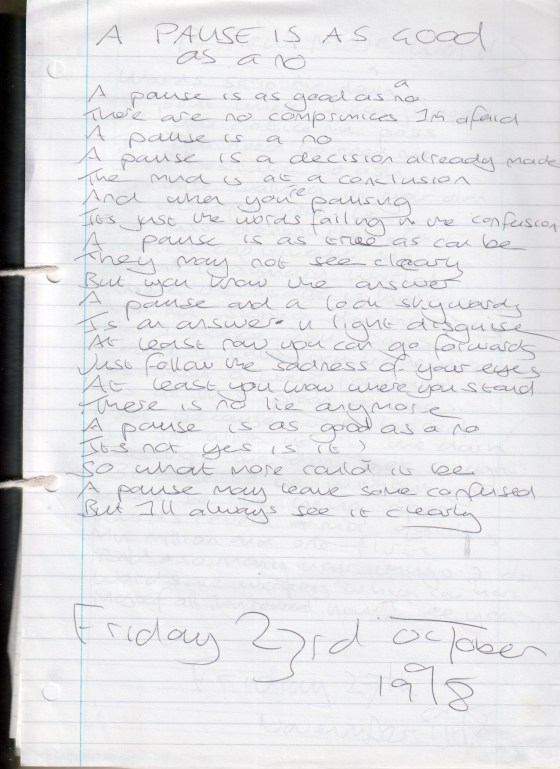 A PAUSE IS AS GOOD
as a no
A pause is as good as a no
There are no compromices Im afaid
A pause is a no
A pause is a decision already made
The mind is at a conclusion
And when you're pausing
It's just the words failing in the confusion
A pause is as true as can be
They may not see clearly
But you know the answer
A pause and a look skywards
Is an answer in light disguise
At least now you can go forwards
Just follow the sadness of your eyes
At least you know where you stand
There is no lie anymore
A pause is as good as a no
Its not yes is it?
So what more could it be
A pause may leave some confused
But I'll always see it clearly
Friday 23rd October
1998